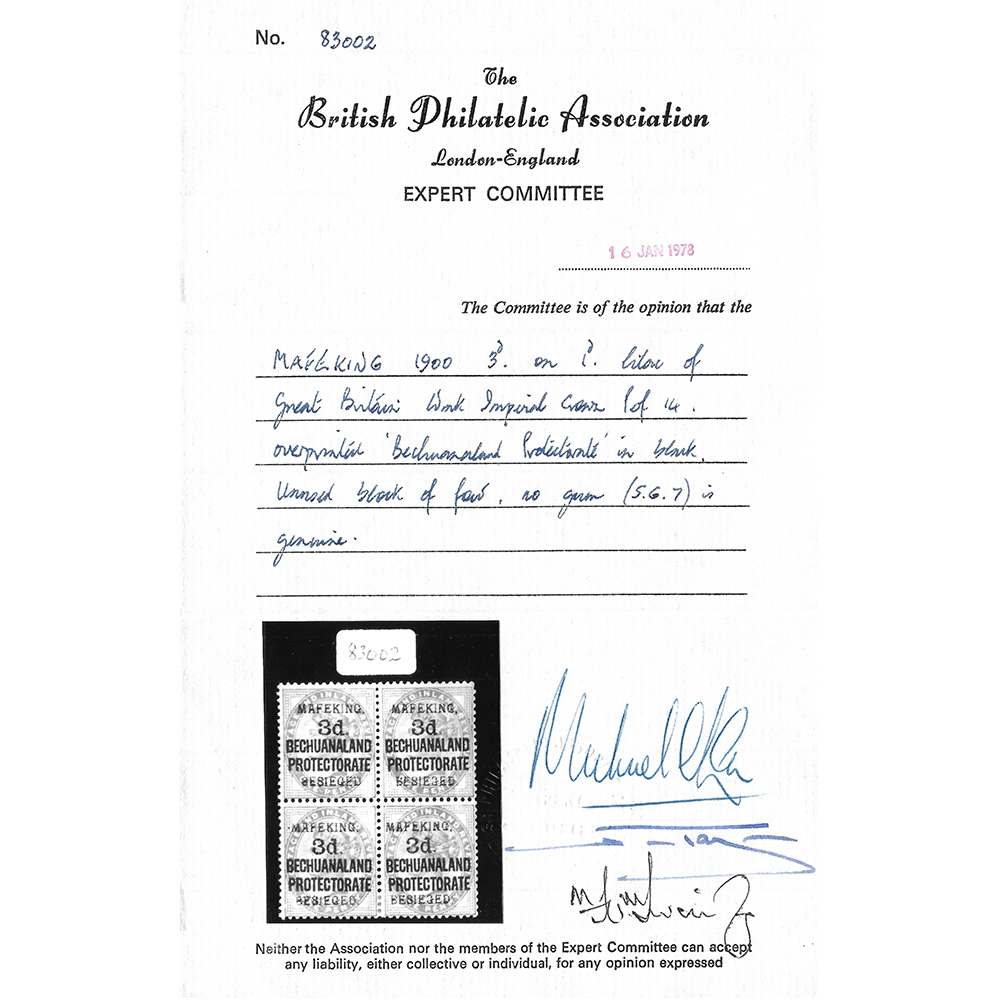 No. 83002
The
British Philatelic Association
London-England
EXPERT COMMITTEE
16 JAN 1978
The Committee is of the opinion that the
MAFEKING 1900 3d. on 1d. lilac of
Great Britain Wmk Imperial Crown Perf 14.
overprinted 'Bechuanaland Protectorate' in black.
Unused block of four, no gum (S.G. 7) is
genuine.
83002
MAFEKING, MAFEKING,
3d. 3d.
BECHUANALAND BECHUANALAND
PROTECTORATE PROTECTORATE
BESIEGED BESIEGED
MAFEKING, MAFEKING,
3d. 3d.
BECHUANALAND BECHUANALAND
PROTECTORATE PROTECTORATE
BESIEGED. BESIEGED.
Michael
Neither the Association nor the members of the Expert Committee can accept
any liability, either collective or individual, for any opinion expressed